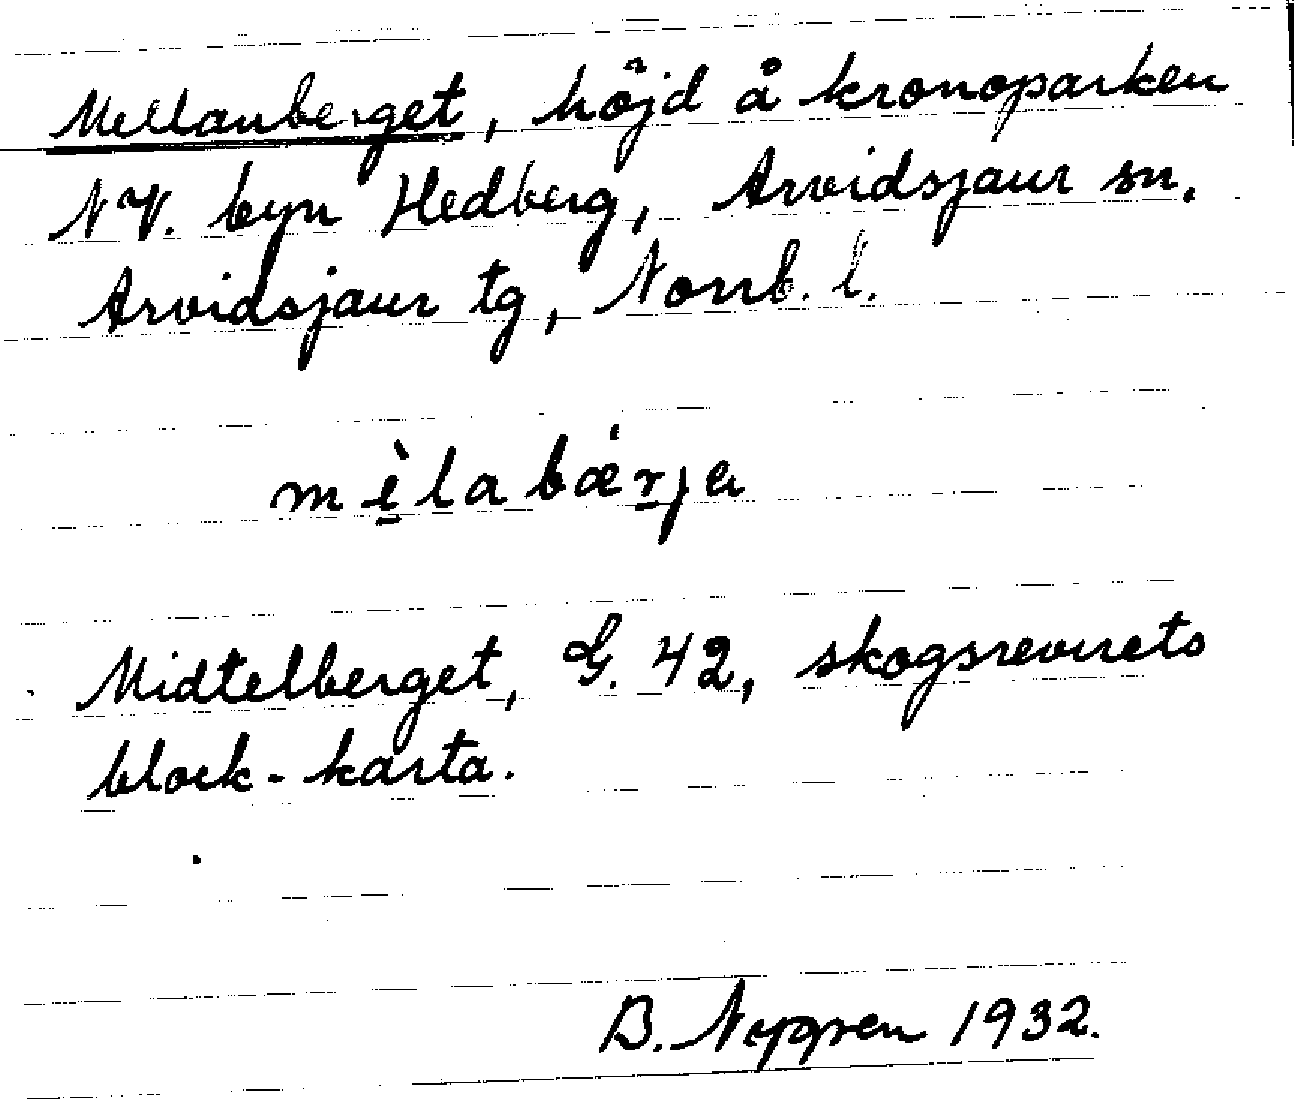 Mellanberget, höjd å kronoparken
NV. byn Hedberg, Arvidsjaur sn.
Arvidsjaur tg, Norrb. l.
mèlabárja
Midtelberget, G. 42, skogsrevirets
block-karta.
B. Nygren 1932.